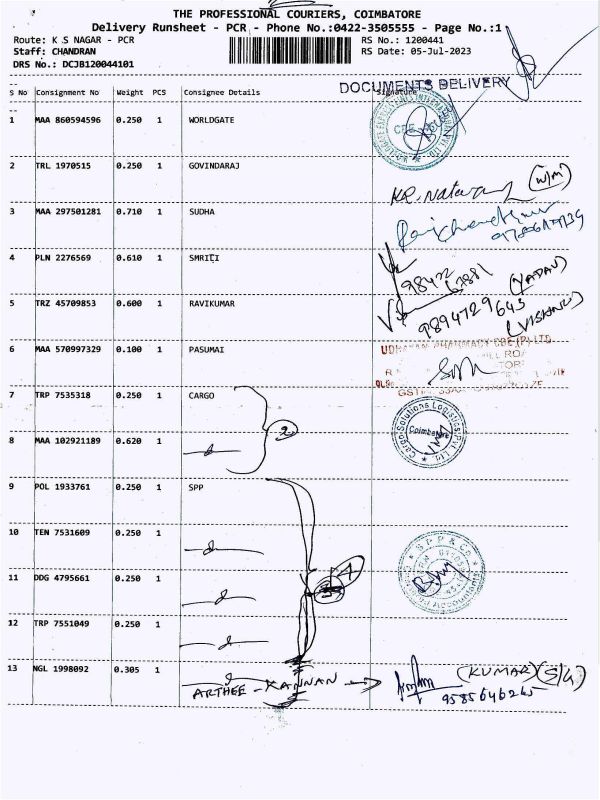 THE PROFESSIONAL COURIERS, COIMBATORE
Delivery Runsheet - PCR - Phone No.:0422-3505555 - Page No.:1
Route: K S NAGAR - PCR RS No.: 1200441
Staff: CHANDRAN RS Date: 05-Jul-2023
DRS No.: DCJB120044101
DOCUMENTS DELIVERY
S No Consignment No Weight PCS Consignee Details Signature
1 MAA 860594596 0.250 1 WORLDGATE
2 TRL 1970515 0.250 1 GOVINDARAJ
KR. Nataraj (W/M)
3 MAA 297501281 0.710 1 SUDHA
4 PLN 2276569 0.610 1 SMRITI
98422 67881 (YADAV)
5 TRZ 45709853 0.600 1 RAVIKUMAR
9894729643 (VISHNU)
6 MAA 570997329 0.100 1 PASUMAI
PHARMACY CBE (P) LTD
7 TRP 7535318 0.250 1 CARGO
Cargo Solutions Logistics Pvt. Ltd.
Coimbatore
2
8 MAA 102921189 0.620 1
9 POL 1933761 0.250 1 SPP
10 TEN 7531609 0.250 1
S P P & Co.
Accountants
11 DDG 4795661 0.250 1
4
12 TRP 7551049 0.250 1
13 NGL 1998092 0.305 1
ARTHEE - KANNAN (KUMAR) (S/G)
9585646265